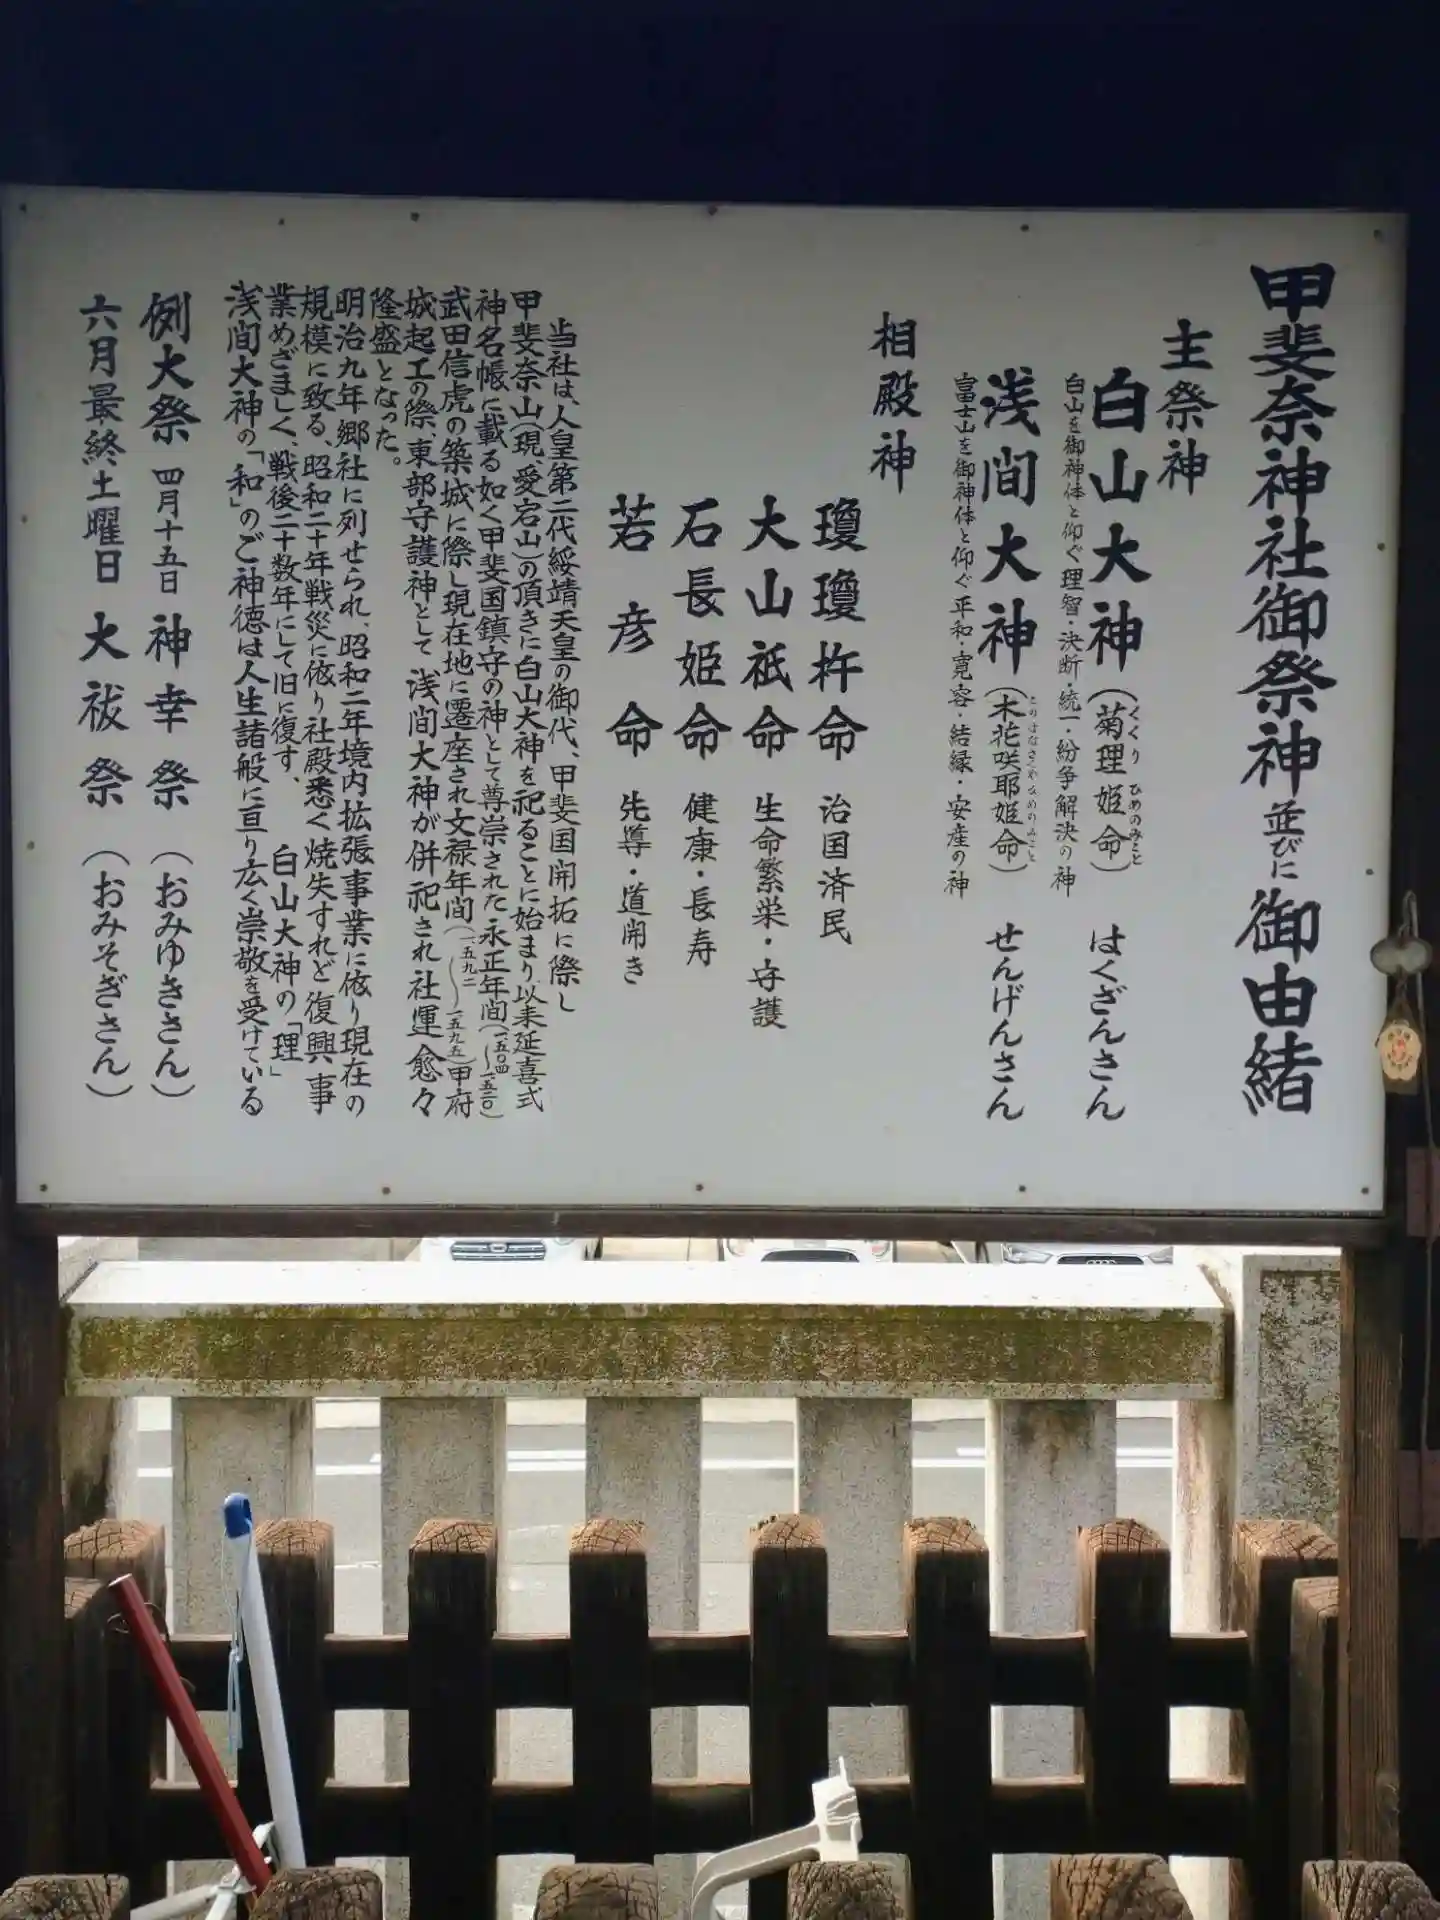 甲斐奈神社御祭神並びに御由緒
主祭神
白山大神(菊理姫命) はくざんさん
くくり ひめのみこと
白山を御神体と仰ぐ理智・決断・統一・紛争解決の神
浅間大神(木花咲耶姫命) せんげんさん
このはなさくやひめのみこと
富士山を御神体と仰ぐ平和・寛容・結縁・安産の神
相殿神
瓊瓊杵命 治国済民
大山祇命 生命繁栄・守護
石長姫命 健康・長寿
若彦命 先導・道開き
当社は、人皇第二代綏靖天皇の御代、甲斐国開拓に際し
甲斐奈山(現、愛宕山)の頂きに白山大神を祀ることに始まり、以来延喜式
神名帳に載る如く甲斐国鎮守の神として尊崇された永正年間(一五〇四〜一五二〇)
武田信虎の築城に際し現在地に遷座され文禄年間(一五九二〜一五九五)甲府
城起工の際、東部守護神として 浅間大神が併祀され社運愈々
隆盛となった。
明治九年郷社に列せられ、昭和二年境内拡張事業に依り現在の
規模に致る、昭和二十年戦災に依り社殿悉く焼失すれど復興事
業めざましく、戦後二十数年にして旧に復す、 白山大神の「理」
浅間大神の「和」のご神徳は人生諸般に亘り広く崇敬を受けている
例大祭 四月十五日 神幸祭 (おみゆきさん)
六月最終土曜日 大祓祭 (おみそぎさん)